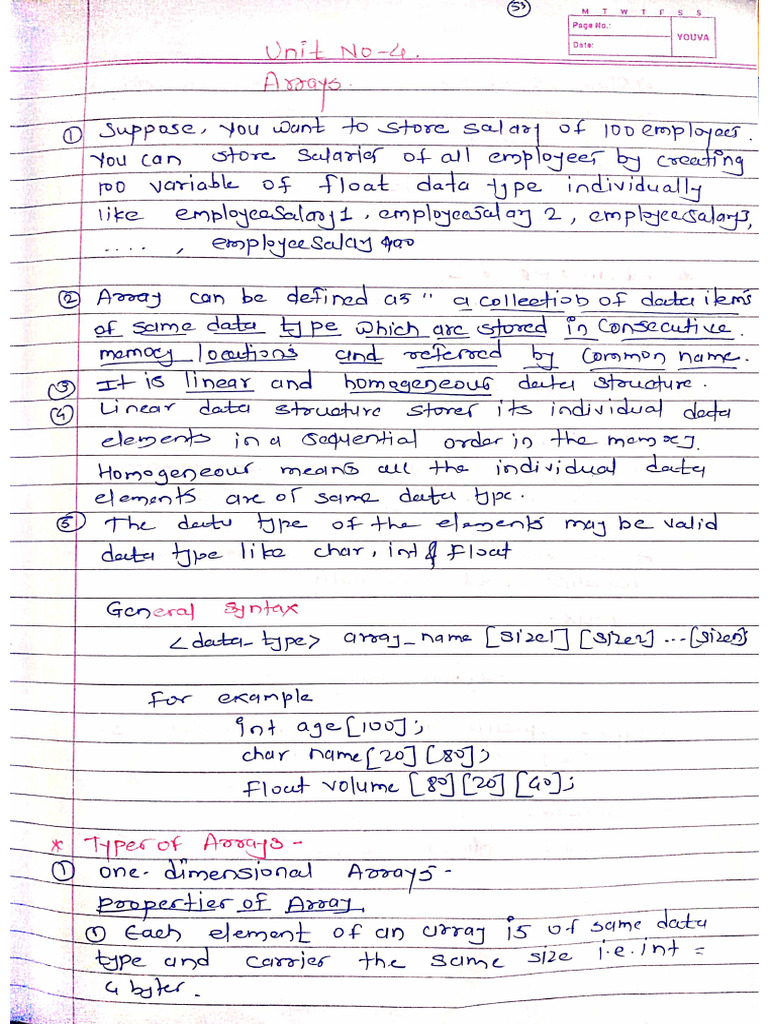 53
M T W T F S S
Page No.:
YOUVA
Date:
Unit No-4.
Arrays.
① Suppose, you want to store salary of 100 employees.
You can store salaries of all employees by creating
100 variable of float data type individually
like employeesalary1, employeesalay 2, employeesalary3,
...., employeesalay 100
② Array can be defined as " a collection of data items
of same data type which are stored in consecutive
memory locations and referred by common name.
③ It is linear and homogeneous data structure.
④ Linear data structure stores its individual data
elements in a sequential order in the memory.
Homogeneous means all the individual data
elements are of same data type.
⑤ The data type of the elements may be valid
data type like char, int & float
General Syntax
<data_type> array_name [size1] [size2] ... [sizen]
For example
int age[100];
char name[20][80];
float volume [80][20][40];
* Types of Arrays -
① one-dimensional Arrays -
Properties of Array
① Each element of an array is of same data
type and carries the same size i.e. int =
4 bytes.